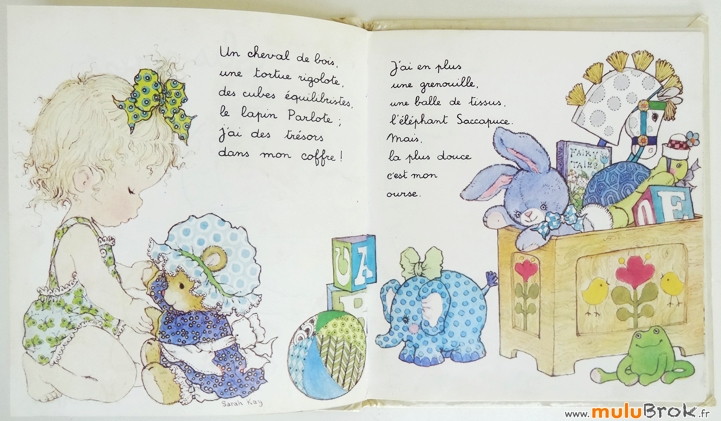 Un cheval de bois,
une tortue rigolote,
des cubes équilibristes,
le lapin Parlote ;
j'ai des trésors
dans mon coffre !
Sarah Kay
J'ai en plus
une grenouille,
une balle de tissus,
l'éléphant Saccapuce.
Mais,
la plus douce
c'est mon
ourse.
FAIRY
TAIRS
U A
E
www.muluBrok.fr